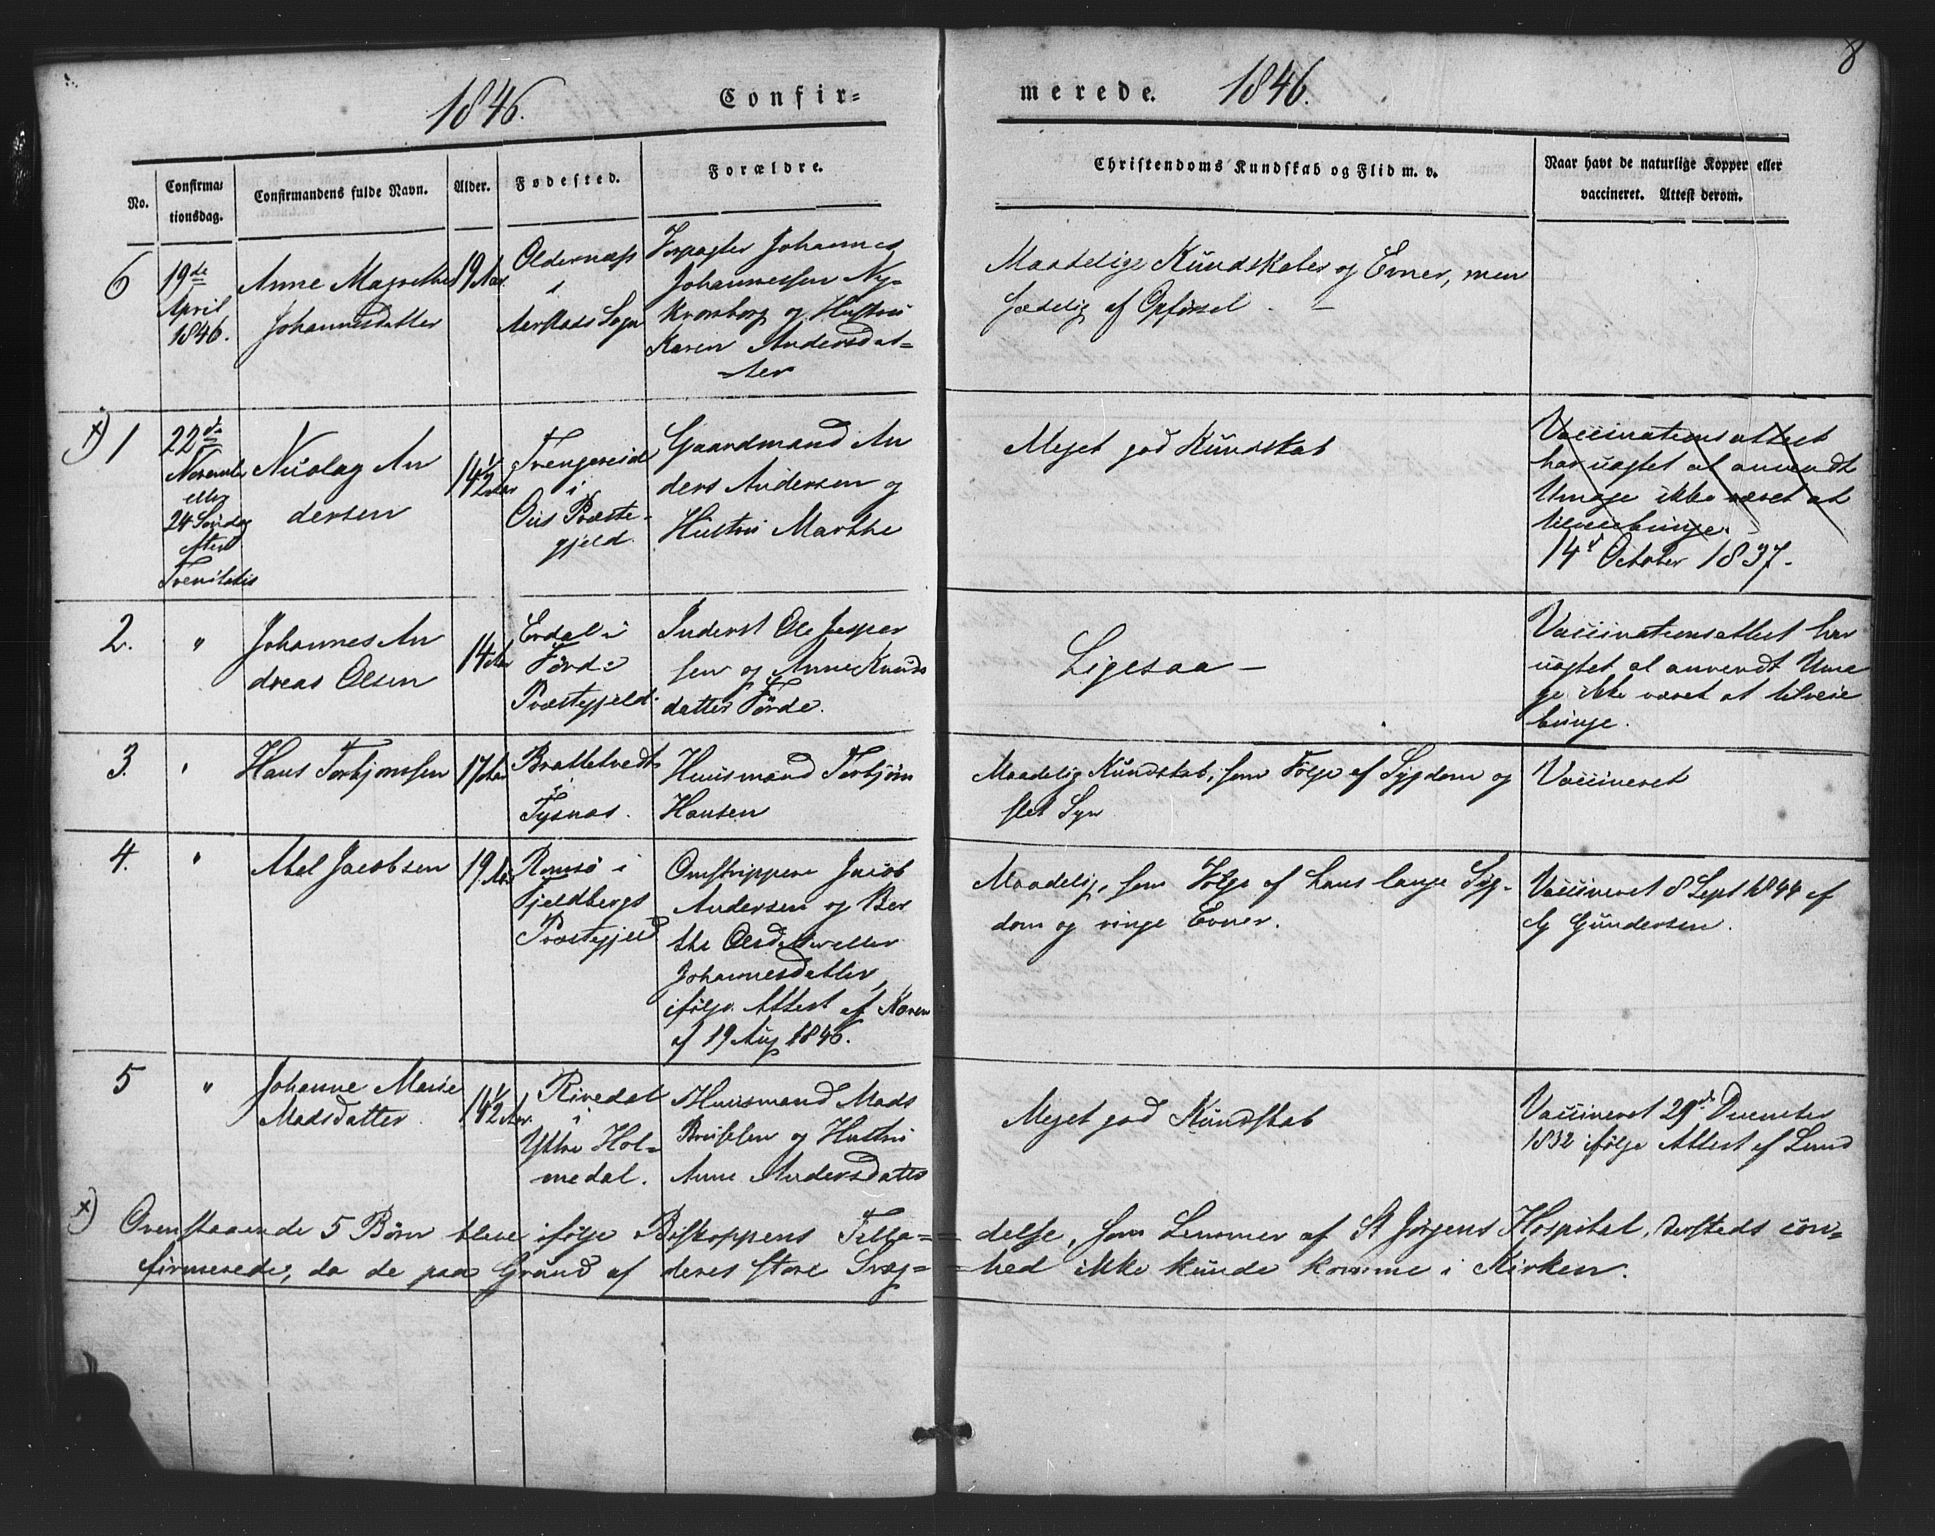 8
1846. Confir- merede. 1846.
No.
Confirma-
tionsdag.
Confirmandens fulde Navn.
Alder.
Fødested.
Forældre.
Christendoms Kundskab og Flid m. v.
Naar havt de naturlige Kopper eller
vaccineret. Attest derom.
6
19de
April
1846.
Anne Magrethe
Johannesdatter
19 Aar
Oldernæss
i
Aerstads Sogn
Forpagter Johannes
Johannessen Ny-
Kronborg og Hustru
Karen Andersdat-
ter
Maadelige Kundskaber og Evner, men
sædelig af Opførsel. —
x) 1
22de
Novembr
eller
24 Søndag
efter
Trenitatis
Nicolay An
dersen
14½ Aar
Trengereid
i
Ous Præste-
gjeld.
Gaardmand An
ders Andersen og
Hustru Marthe
Meget god Kundskab
Vaccinationsattest
har uagtet al anvendt
Umage ikke været at
tilveiebringe.
14d October 1837.
2.
"
Johannes An
dreas Olsen
14 Aar
Erdal i
Førde
Præstegjeld.
Inderst Ole Jesper
sen og Anne Knuds
datter Førde.
Ligesaa —
Vaccinationsattest har
uagtet al anvendt Uma
ge ikke været at tilveie
bringe.
3.
"
Hans Torbjørnsen
17 Aar
Brattetvedt
i
Tysnæs.
Huusmand Torbjørn
Hansen
Maadelig Kundskab, som Følge af Sygdom og
slet Syn
Vaccineret
4.
"
Abel Jacobsen
19 Aar
Romsö i
Fjeldbergs
Præstegjeld
Omstrippere Jacob
Andersen og Ber
the Olsdatter eller
Johannesdatter,
ifølge Attest af
af 19 Aug 1846.
Maadelig, som Følge af hans lange Syg-
dom og ringe Evner.
Vaccineret 8 Sept 1844 af
G Gundersen.
5
"
Johanne Marie
Madsdatter
14½ Aar.
Rivedal
i
Yttre Hol-
medal.
Huusmand Mads
og Hustru
Anne Andersdatter
Meget god Kundskab
Vaccineret 29de December
1832 ifølge Attest af Lund
x) Ovenstaaende 5 Børn bleve ifølge Biskoppens Tilla- delse, som Lemmer af St Jørgens Hospital, sersteds con-
firmerede, da de paa Grund af deres store Svag- hed ikke kunde komme i Kirken.